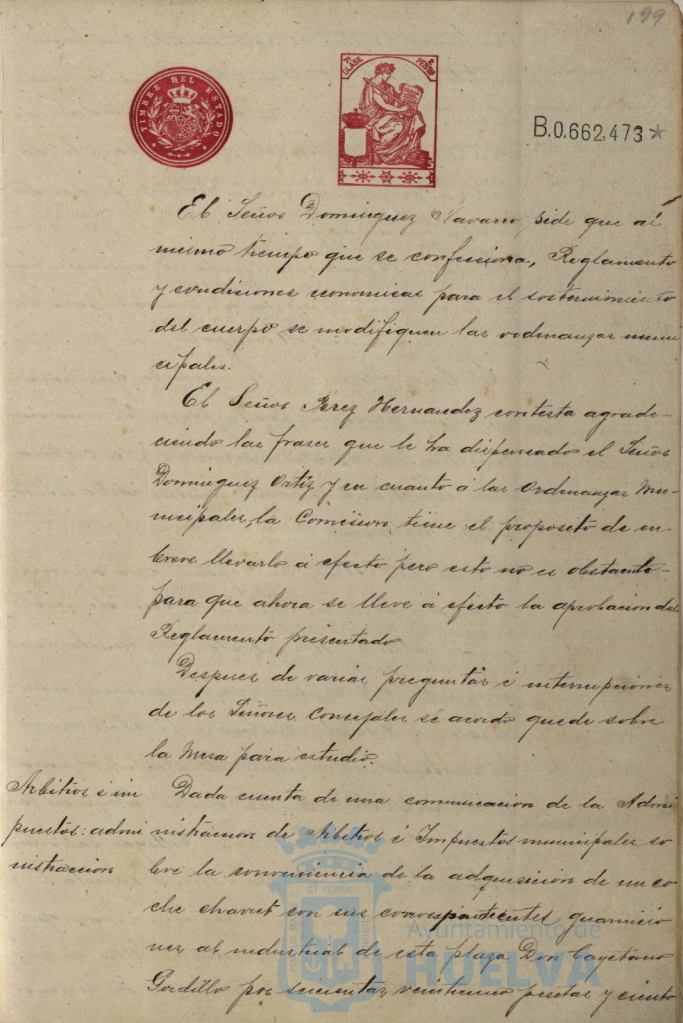 199
TIMBRE DEL ESTADO
7ª CLASE
PESETAS
B.0.662,473*
El Señor Dominguez Navarro, pide que al
mismo tiempo que se confecciona, Reglamento
y condiciones economicas para el sostenimiento
del cuerpo se modifiquen las ordenanzas muni
cipales.
El Señor Perez Hernandez contesta agrade-
ciendo las frases que le ha dispensado el Señor
Dominguez Ortiz y en cuanto á las Ordenanzas Mu-
nicipales, la Comision tiene el proposito de en
breve llevarlo á efecto pero esto no es obstaculo
para que ahora se lleve á efecto la aprobacion del
Reglamento presentado
Despues de varias preguntas é interrupciones
de los Señores Concejales se acordo quede sobre
la Mesa para estudio.
Arbitrios é im
puestos: admi
nistracion
Dada cuenta de una comunicacion de la Admi
nistracion de Arbitrios é Impuestos municipales so
bre la conveniencia de la adquisicion de un co
che charret con sus correspondientes guarnicio
nes al industrial de esta plaza Don Cayetano
Gordillo por seiscientas veintiuno pesetas y ciento
Ayuntamiento de
HUELVA